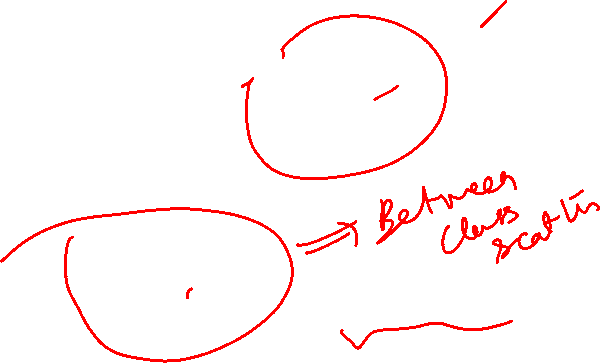 Between
class
scatter